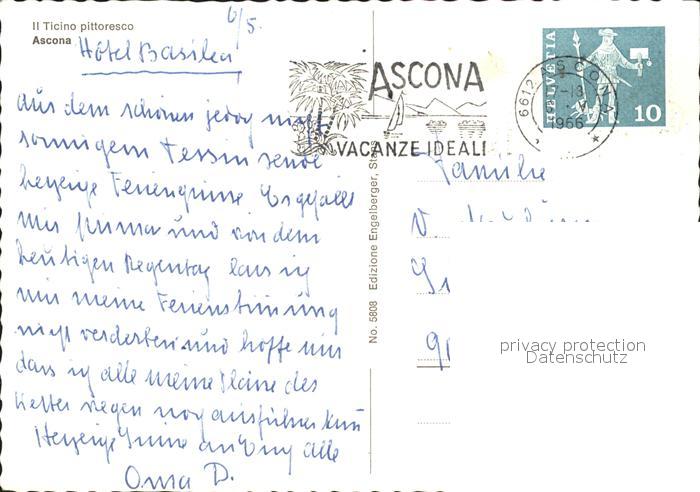 Il Ticino pittoresco
Ascona
6/5.
Hôtel Basilea
aus dem schönen jedoch nicht
sonnigem Tessin sende
herzige Feriengrüsse Es gefällt
mir prima und von dem
heutigen Regentag lass ich
mir meine Ferienstimmung
nicht verderben und hoffe nur
dass ich alle meine Pläne des
Wetters wegen noch ausführen kann
Herzige Grüsse an Euch alle
Oma D.
No. 5808 Edizione Engelberger,
ASCONA
VACANZE IDEALI
HELVETIA
10
6612 ASCONA
1966
Familie
privacy protection
Datenschutz